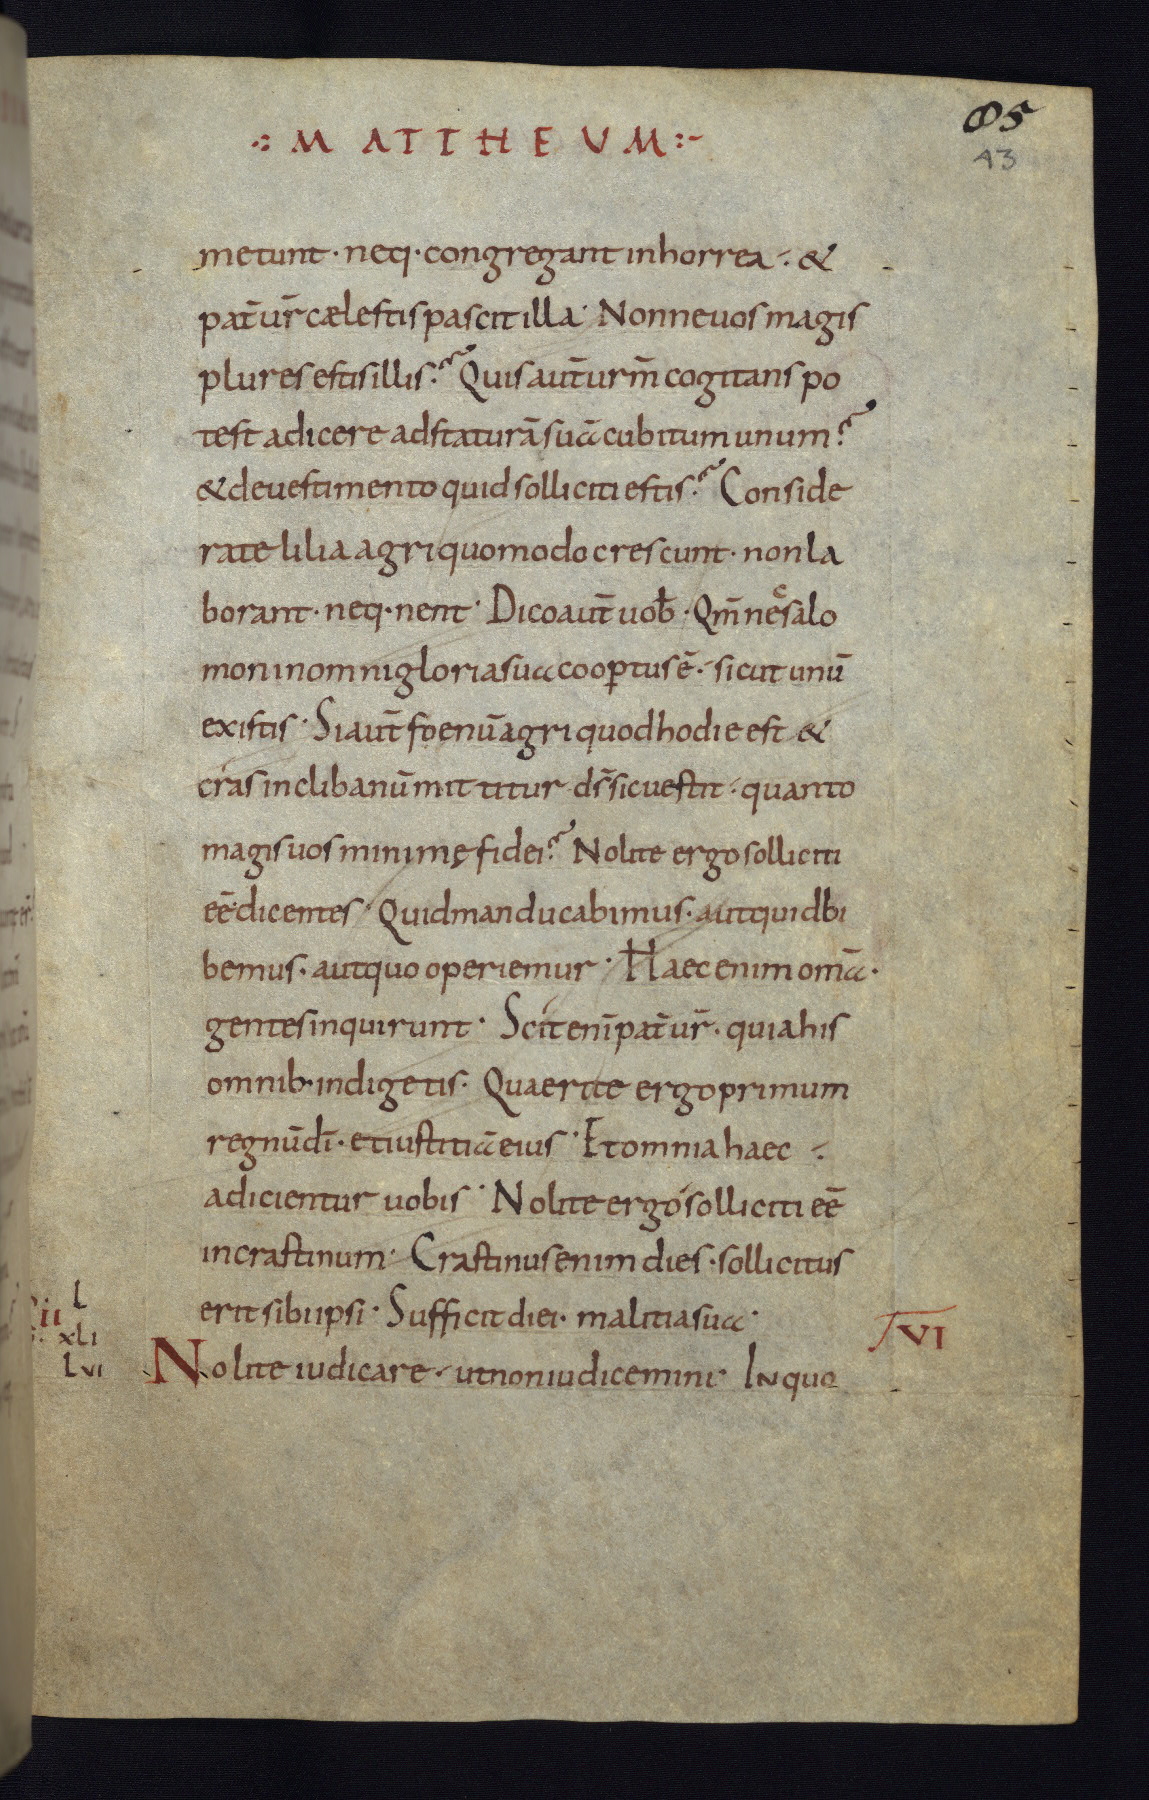 ·: MATTHEUM :-
85
43
metunt · neq· congregant in horrea ·:· &
pat̄ ur̄ cælestis pascit illa · Nonne uos magis
plures estis illis? Quis aut̄ ur̄m̄ cogitans po
test adicere ad staturā suā cubitum unum?
& de uestimento quid solliciti estis? Conside
rate lilia agri quomodo crescunt · non la
borant · neq· nent · Dico aut̄ uob̄ · Qm̄ nec salo
mon in omni gloria sua coop̄tus ē · sicut unū
ex istis · Si aut̄ foenū agri quod hodie est &
cras in clibanū mittitur ds̄ sic uestit · quanto
magis uos minimę fidei? Nolite ergo solliciti
eē dicentes · Quid manducabimus · aut quid bi
bemus · aut quo operiemur · Haec enim om̄a ·
gentes inquirunt · Scit enī pat̄ ur̄ · quia his
omnib· indigetis · Quaerite ergo primum
regnū dī · et iustitiā eius · Et omnia haec ·:·
adicientur uobis · Nolite ergo solliciti eē
in crastinum · Crastinus enim dies · sollicitus
erit sibi ipsi · Sufficit diei · malitia sua ·
L
xLi
Lvi
Nolite iudicare · ut non iudicemini · In quo
VI